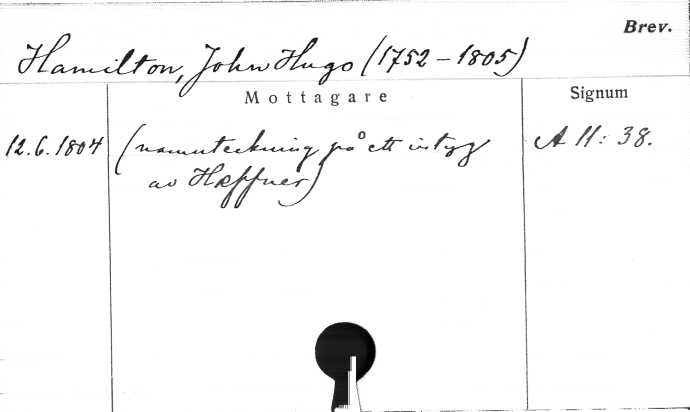 Brev.
Hamilton, John Hugo (1752-1805)
Mottagare
Signum
12.6.1804 (namnteckning på ett intyg A 11: 38.
av Hæffner)